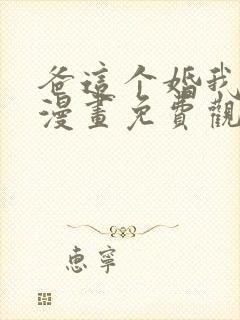 爸這个婚我
漫畫免費觀
惠寧